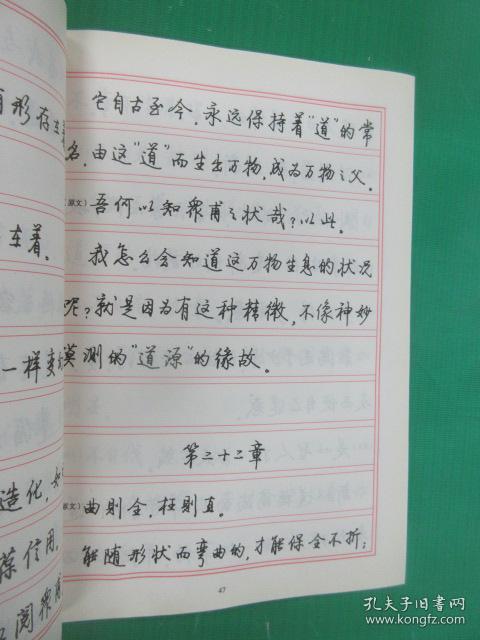 它自古至今，永远保持着“道”的常
名，由这“道”而生出万物，成为万物之父。
（原文）吾何以知众甫之状哉？以此。
我怎么会知道这万物生息的状况
呢？就是因为有这种精微，不像神妙
莫测的“道源”的缘故。
第二十二章
（原文）曲则全，枉则直。
能随形状而弯曲的，才能保全不折；
47
有形存在着
在着。
一样变
造化，如
信用，
阅众甫
孔夫子旧书网
www.kongfz.com